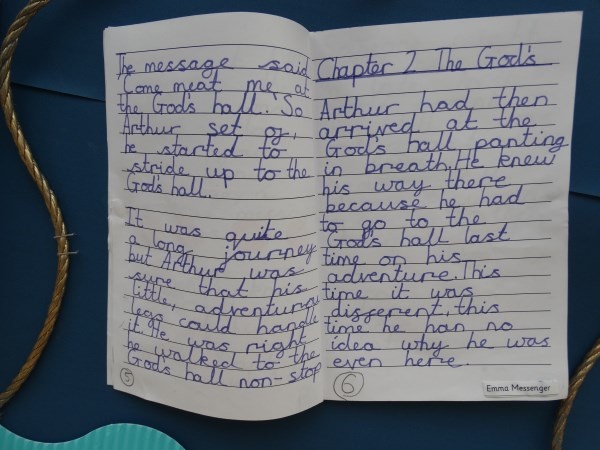 The message said
Come meat me at
the God's hall. So
Arthur set of,
he started to
stride up to the
God's hall.
It was quite
a long journey
but Arthur was
sure that his
little, adventurus
legs could handle
it. He was right
he walked to the
God's hall non-stop
5
Chapter 2 The God's
Arthur had then
arrived at the
God's hall panting
in breath. He knew
his way there
because he had
to go to the
God's hall last
time on his
adventure. This
time it was
disserent, this
time he han no
idea why he was
even here.
6
Emma Messenger